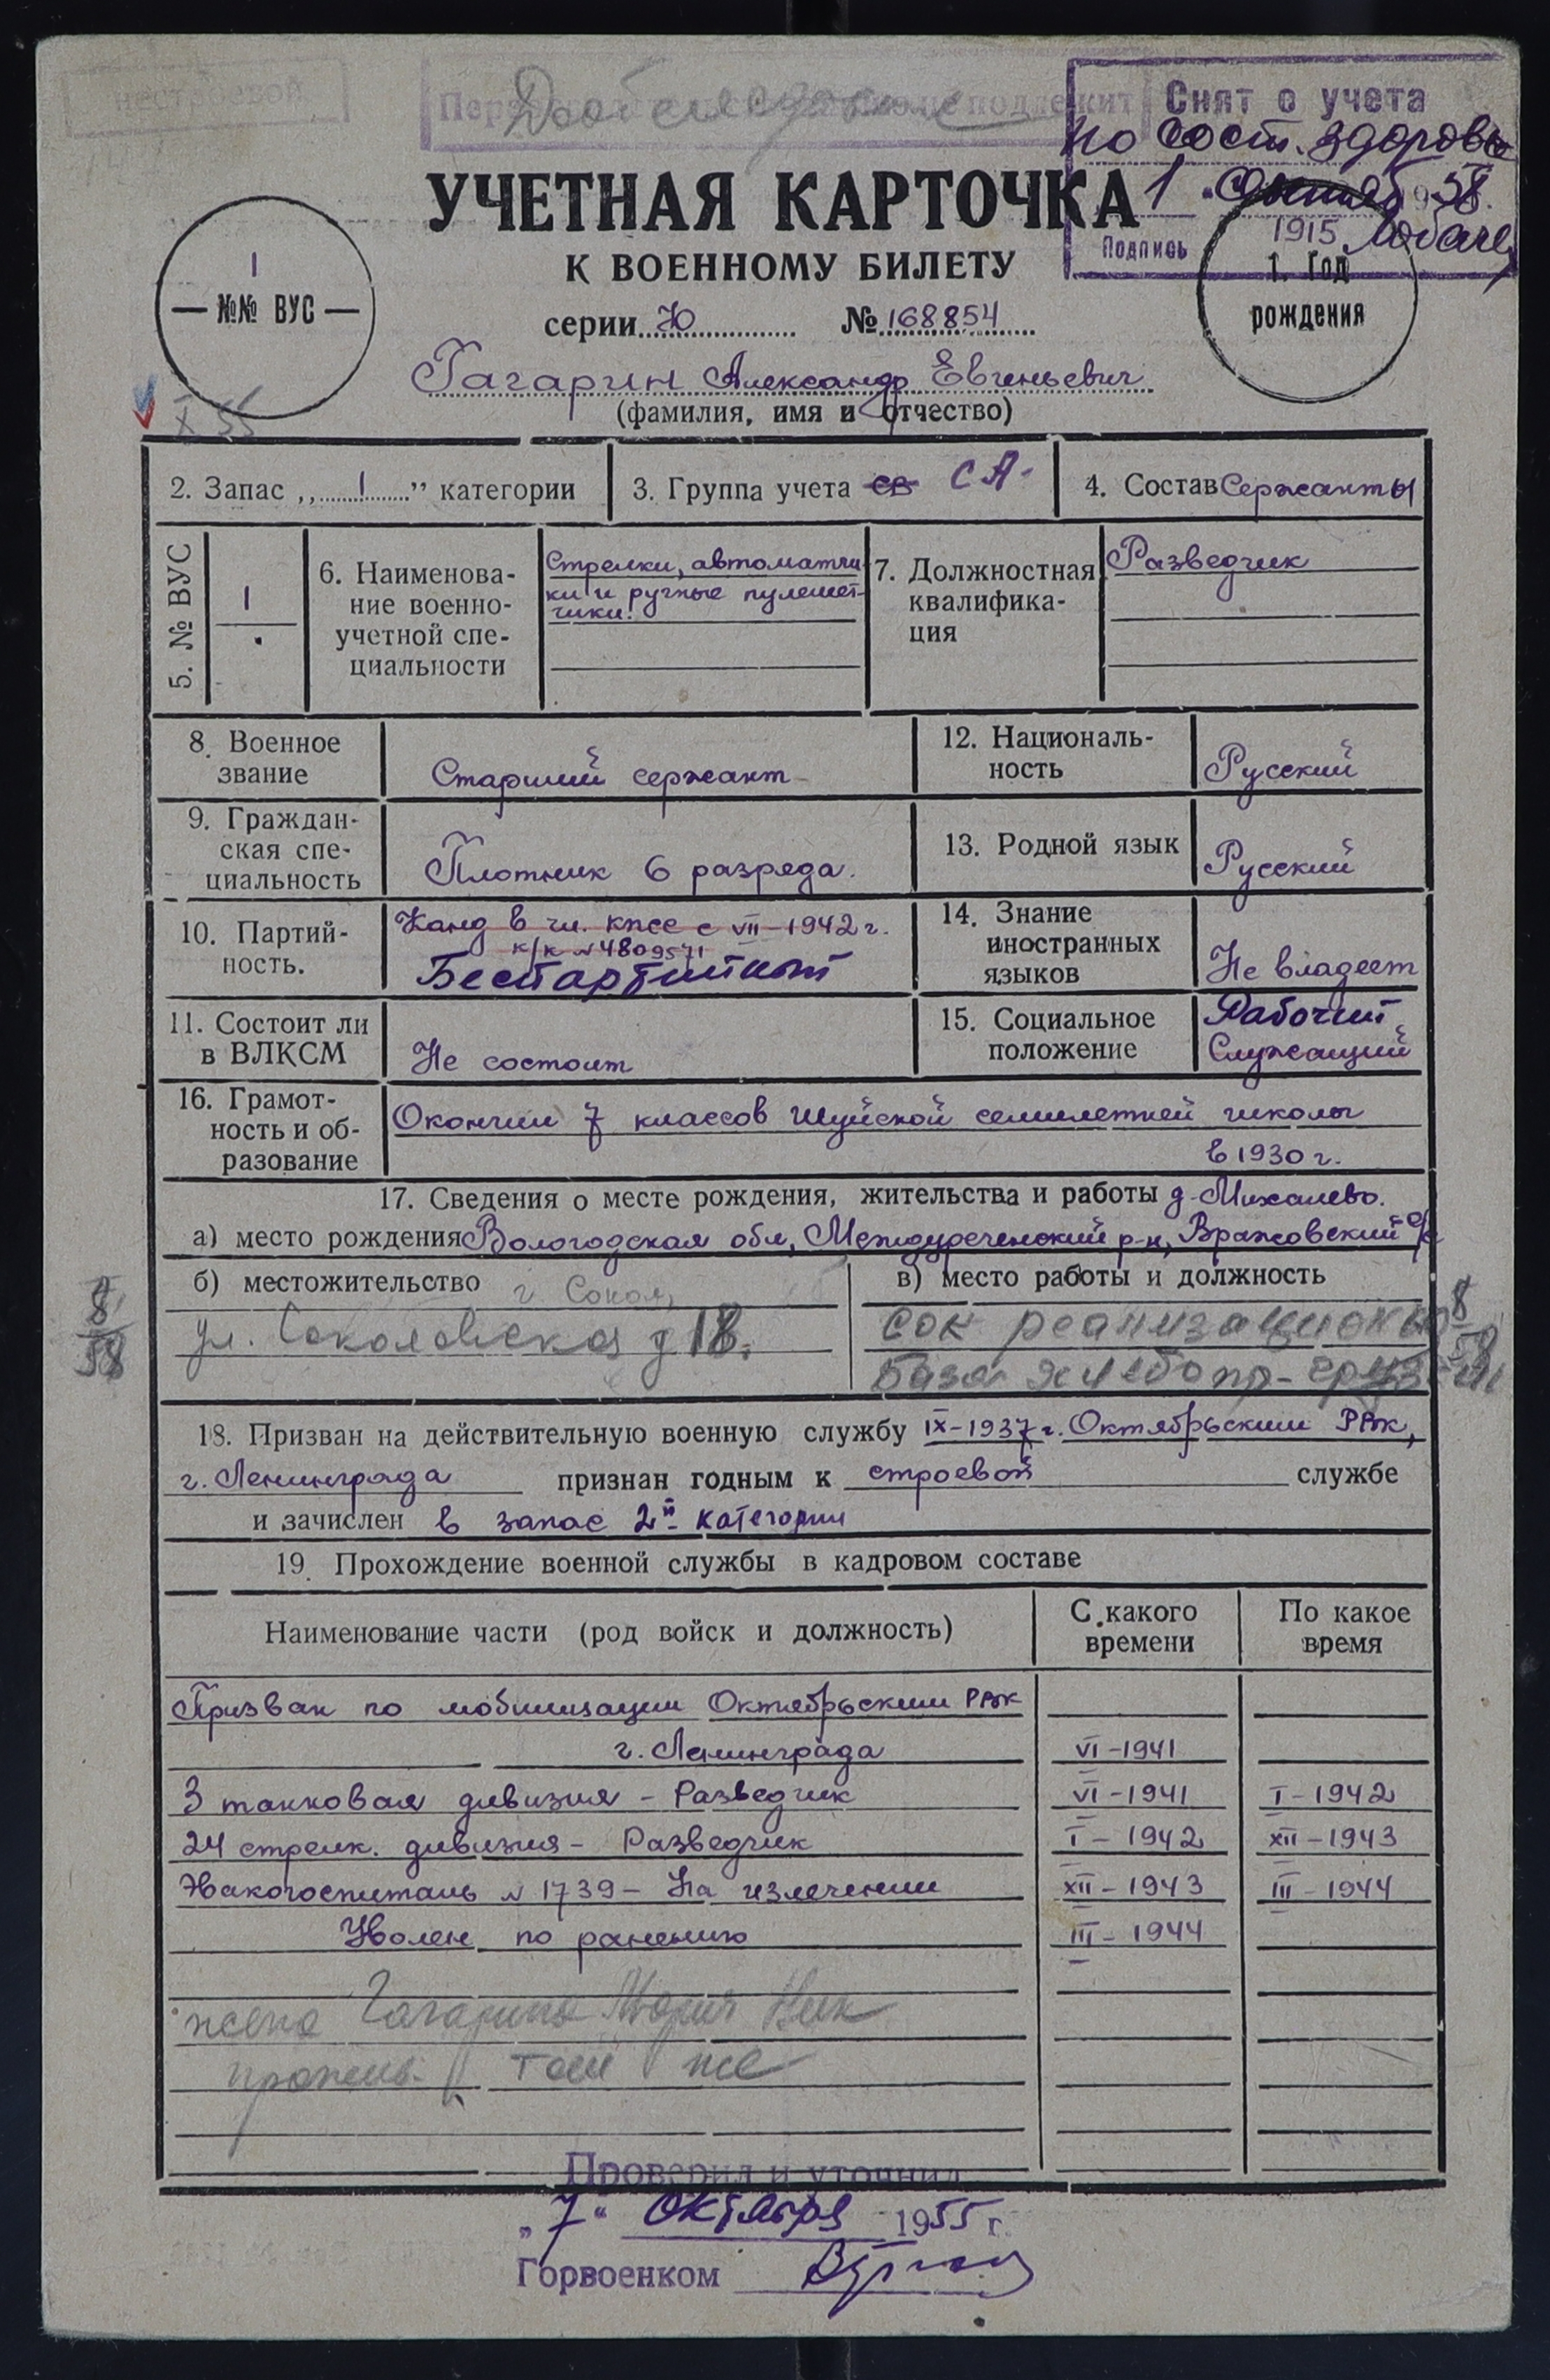 нестроевой
подлежит
Снят с учета
по сост. здоровья
1 1958.
Подпись
УЧЕТНАЯ КАРТОЧКА
К ВОЕННОМУ БИЛЕТУ
1
— №№ ВУС —
1915
1. Год
рождения
серии Ю № 168854
Гагарин Александр Евгеньевич
(фамилия, имя и отчество)
X 55
2. Запас „ 1 ” категории
3. Группа учета св СА
4. Состав Сержанты
5. № ВУС
1
6. Наименова-
ние военно-
учетной спе-
циальности
Стрелки, автоматчи-
ки и ручные пулемет-
чики.
7. Должностная
квалифика-
ция
Разведчик
8. Военное
звание
Старший сержант
12. Националь-
ность
Русский
9. Граждан-
ская спе-
циальность
Плотник 6 разряда.
13. Родной язык
Русский
10. Партий-
ность.
Канд в чл. КПСС с VII-1942 г.
к/к № 4809571
Беспартийный
14. Знание
иностранных
языков
Не владеет
11. Состоит ли
в ВЛКСМ
Не состоит
15. Социальное
положение
Рабочий
Служащий
16. Грамот-
ность и об-
разование
Окончил 7 классов Шуйской семилетней школы
в 1930 г.
17. Сведения о месте рождения, жительства и работы д. Михалево.
а) место рождения Вологодская обл, Междуреченский р-н, Вражовский с/с
б) местожительство г Сокол,
ул. Соколовская д 18.
в) место работы и должность
Сок реализационная
база хлебопр- грузчик
8
58
8
58
18. Призван на действительную военную службу IX-1937 г. Октябрьским РВК,
г. Ленинграда признан годным к строевой службе
и зачислен в запас 2й категории
19. Прохождение военной службы в кадровом составе
Наименование части (род войск и должность)
С какого
времени
По какое
время
Призван по мобилизации Октябрьским РВК
г. Ленинграда VI-1941
3 танковая дивизия - Разведчик VI-1941 I-1942
24 стрелк. дивизия - Разведчик I-1942 XII-1943
Эвакогоспиталь № 1739 - На излечении XII-1943 III-1944
Уволен по ранению III-1944
жена Гагарина Мария Ник
прожив. там же
Проверил и уточнил
„7“ октября 1955 г.
Горвоенком